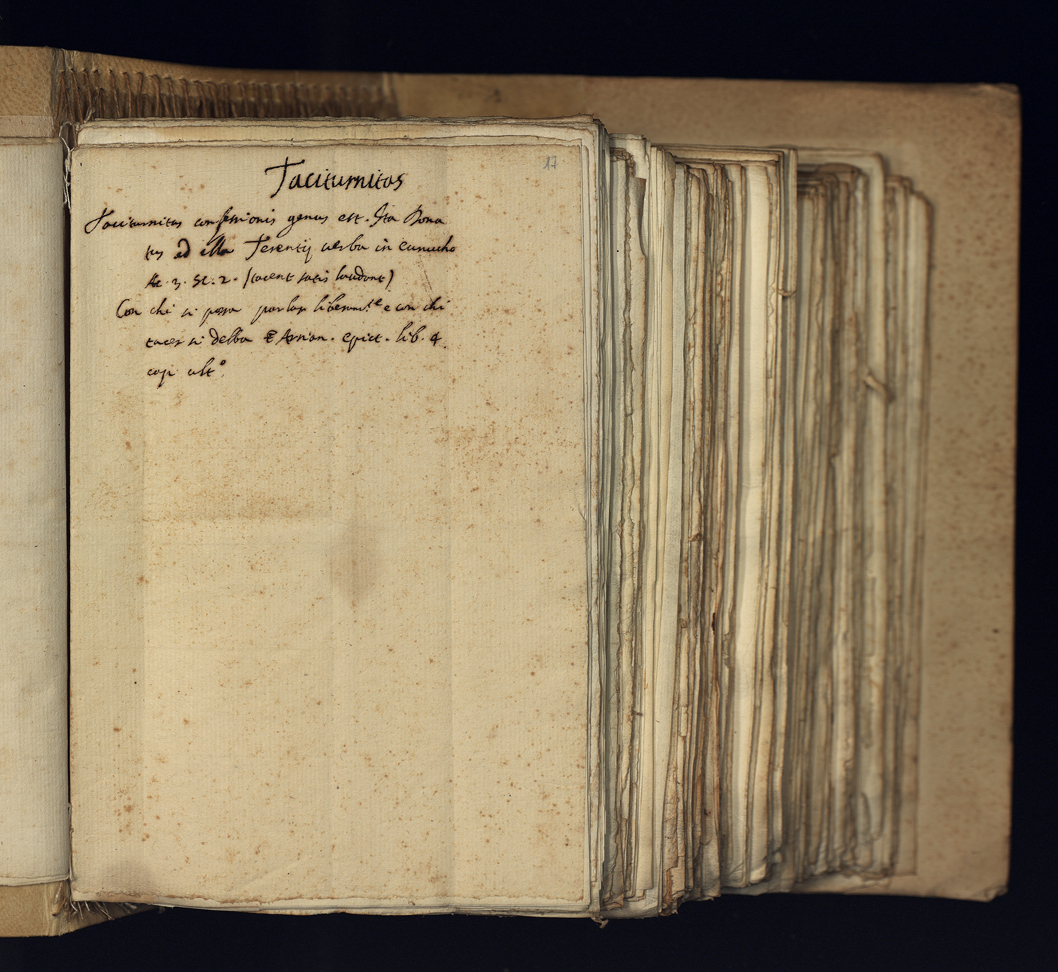 17
Taciturnitas
Taciturnitas confessionis genus est. Ita Dona
tus ad illa Terentij verba in eunucho
Ac. 3. Sc. 2. (tacent satis laudant)
Con chi si possa parlar liberam.te e con chi
tacer si debba Arrian. epict. lib. 4
cap ult.º